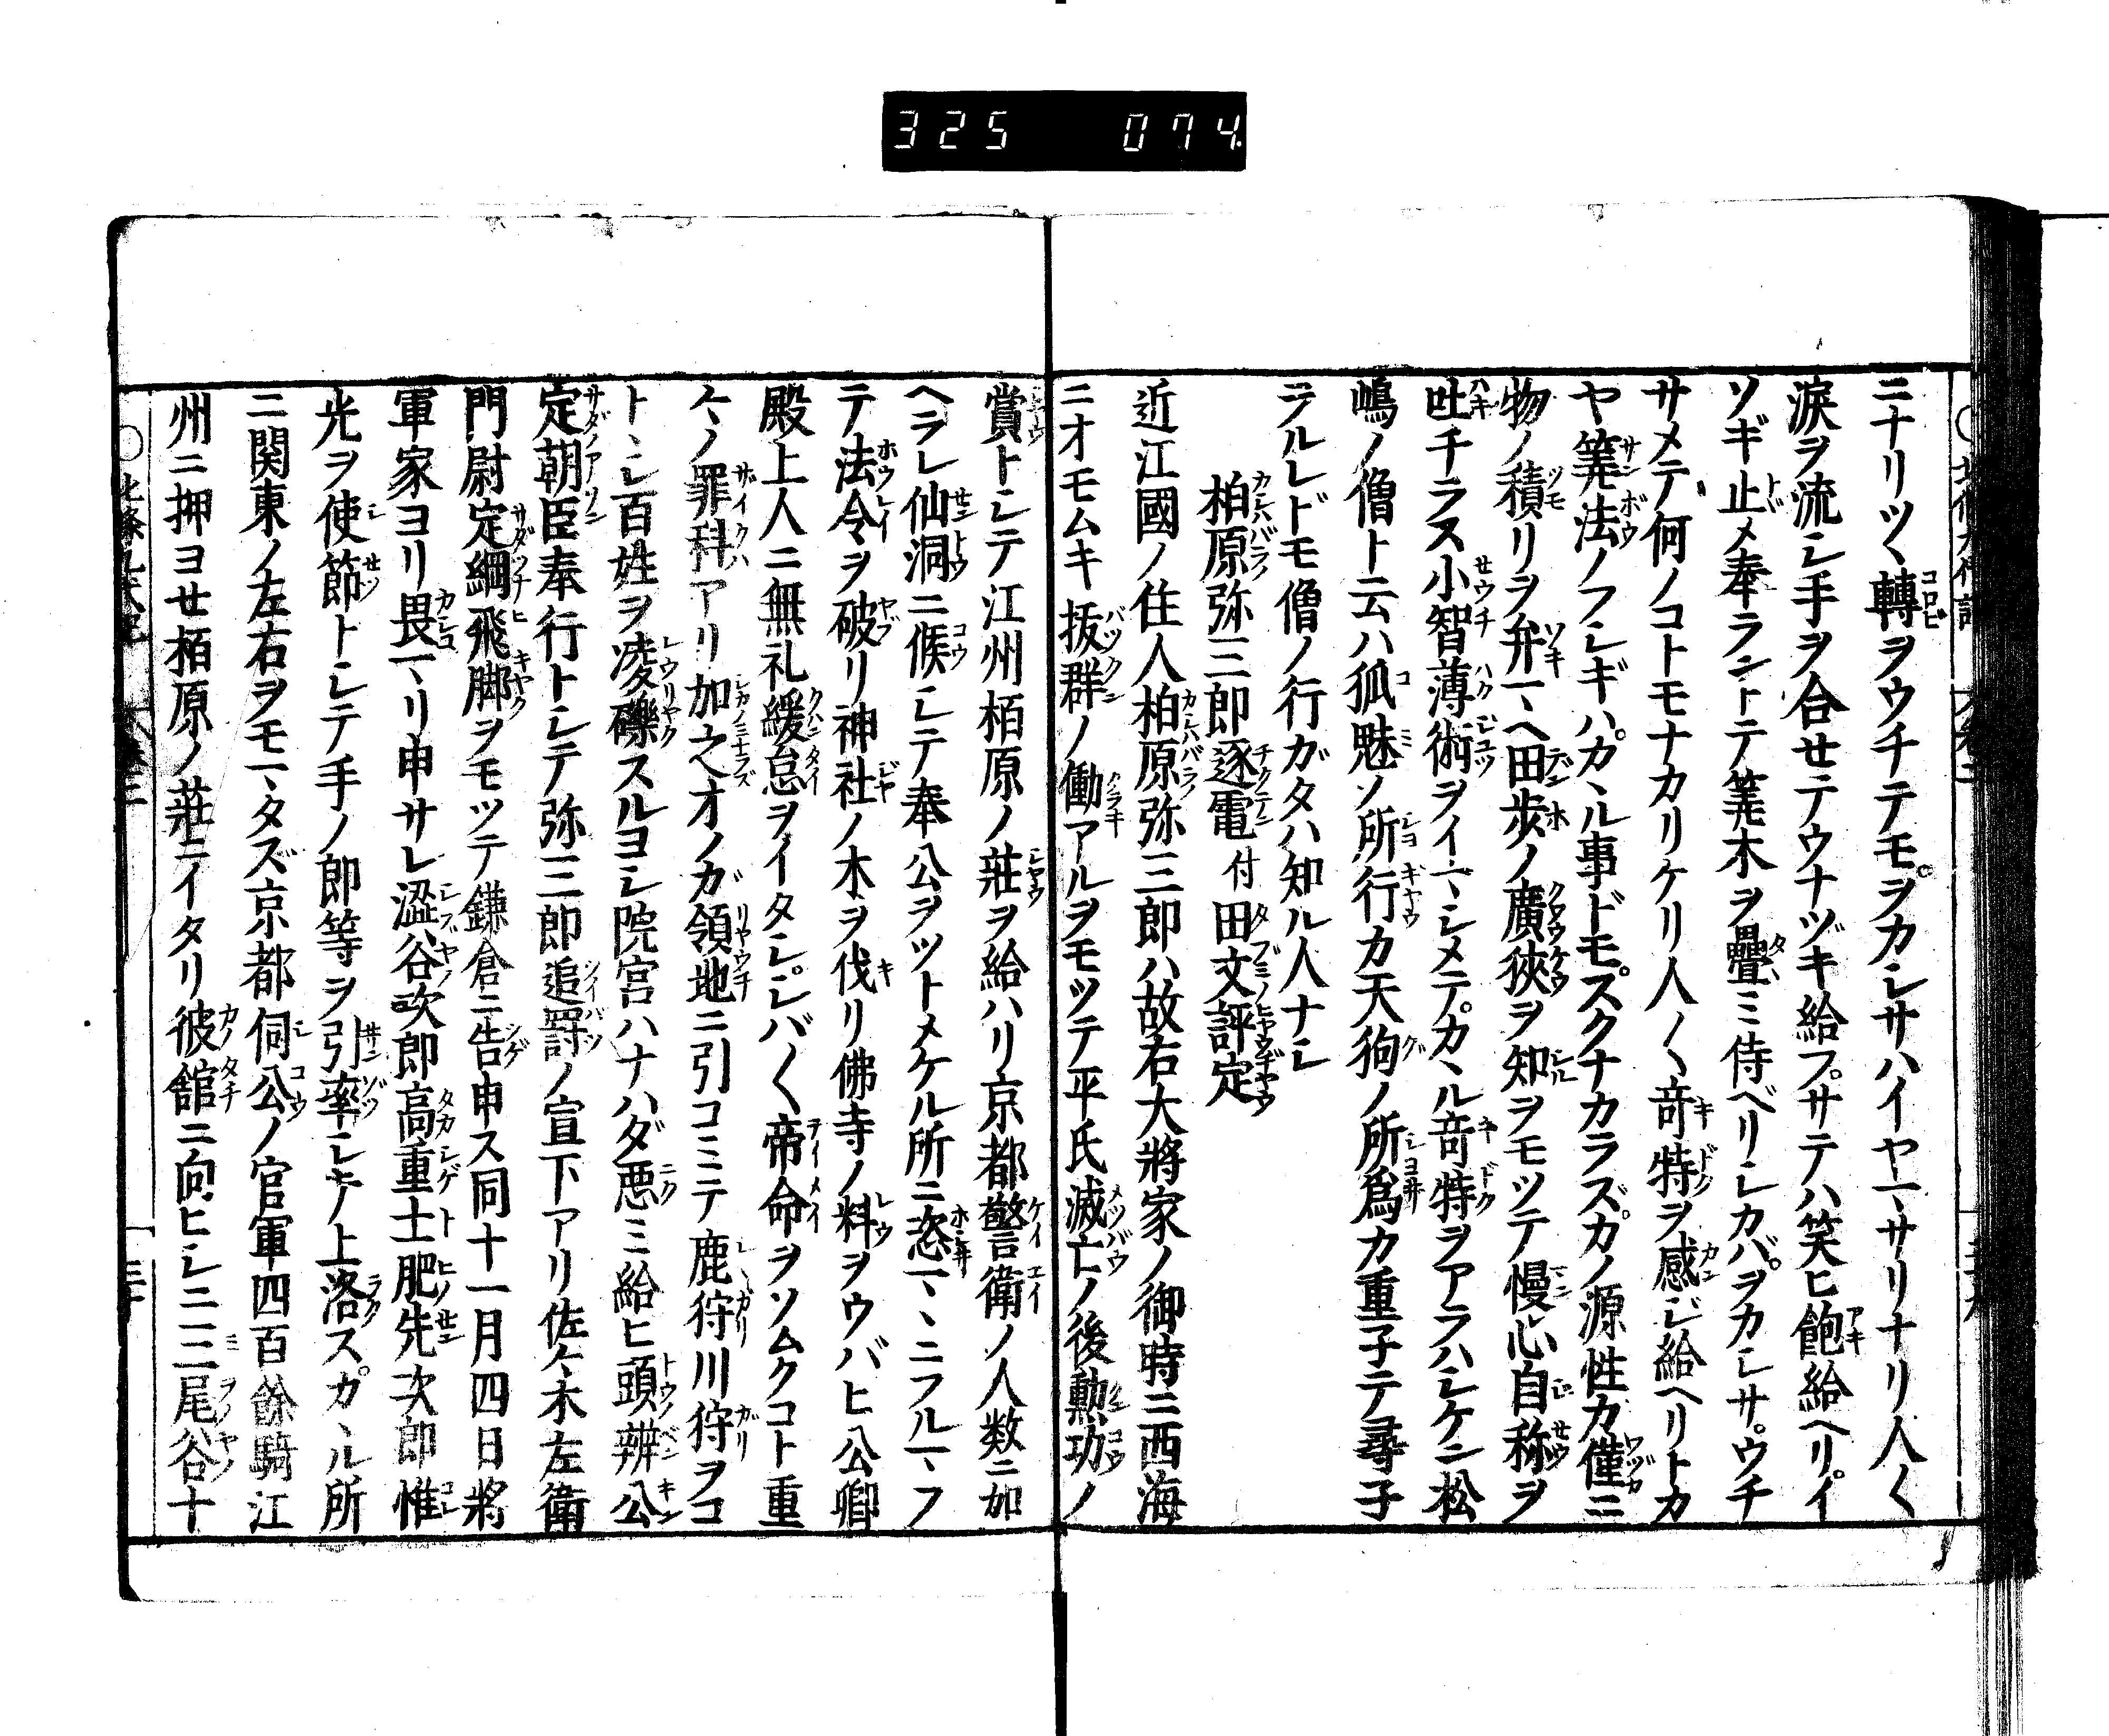 325 074
ニナリツヽ轉ヲウチテモヲカシサハイヤマサリナリ人〱
涙ヲ流シ手ヲ合セテウナヅキ給フサテハ笑ヒ飽給ヘリイ
ソギ止メ奉ラントテ筭木ヲ疊ミ侍ベリシカバヲカシサウチ
サメテ何ノコトモナカリケリ人〱竒特ヲ感ジ給ヘリトカ
ヤ筭法ノフシギハカヽル事ドモスクナカラズカノ源性カ僅ニ
物ノ積リヲ弁マヘ田歩ノ廣狹ヲ知ヲモツテ慢心自称ヲ
吐チラス小智薄術ヲイマシメテカヽル竒特ヲアラハシケン松
嶋ノ僧ト云ハ狐魅ノ所行カ天狗ノ所爲カ重子テ尋子
ラルレドモ僧ノ行ガタハ知ル人ナシ
柏原弥三郎逐電付田文評定
近江國ノ住人柏原弥三郎ハ故右大將家ノ御時ニ西海
ニオモムキ抜群ノ働アルヲモツテ平氏滅亡ノ後勲功ノ
賞トシテ江州栢原ノ莊ヲ給ハリ京都警衛ノ人数ニ加
ヘラレ仙洞ニ候シテ奉公ヲツトメケル所ニ恣マヽニフルマフ
テ法令ヲ破リ神社ノ木ヲ伐リ佛寺ノ料ヲウバヒ公卿
殿上人ニ無礼緩怠ヲイタシシバ〱帝命ヲソムクコト重
々ノ罪科アリ加之オノガ領地ニ引コミテ鹿狩川狩ヲコ
トヽシ百姓ヲ凌礫スルヨシ院宮ハナハダ悪ミ給ヒ頭辨公
定朝臣奉行トシテ弥三郎追討ノ宣下アリ佐々木左衛
門尉定綱飛脚ヲモツテ鎌倉ニ告申ス同十一月四日將
軍家ヨリ畏マリ申サレ澁谷次郎高重土肥先次郎惟
光ヲ使節トシテ手ノ郎等ヲ引率シキノ上洛スカヽル所
ニ関東ノ左右ヲモマタズ京都伺公ノ官軍四百餘騎江
州ニ押ヨセ栢原ノ莊ニイタリ彼舘ニ向ヒシニ三尾谷十